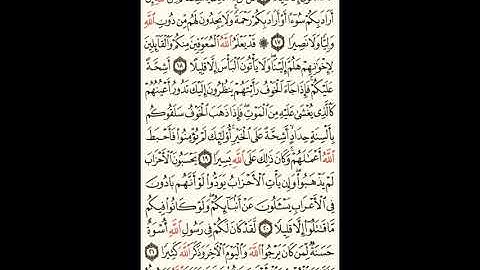 أَرَادَ بِكُمْ سُوٓءًا أَوْ أَرَادَ بِكُمْ رَحْمَةً وَلَا يَجِدُونَ لَهُم مِّن دُونِ ٱللَّهِ
وَلِيًّا وَلَا نَصِيرًا ١٧ ۞ قَدْ يَعْلَمُ ٱللَّهُ ٱلْمُعَوِّقِينَ مِنكُمْ وَٱلْقَآئِلِينَ
لِإِخْوَٰنِهِمْ هَلُمَّ إِلَيْنَا وَلَا يَأْتُونَ ٱلْبَأْسَ إِلَّا قَلِيلًا ١٨ أَشِحَّةً
عَلَيْكُمْ فَإِذَا جَآءَ ٱلْخَوْفُ رَأَيْتَهُمْ يَنظُرُونَ إِلَيْكَ تَدُورُ أَعْيُنُهُمْ
كَٱلَّذِى يُغْشَىٰ عَلَيْهِ مِنَ ٱلْمَوْتِ فَإِذَا ذَهَبَ ٱلْخَوْفُ سَلَقُوكُم
بِأَلْسِنَةٍ حِدَادٍ أَشِحَّةً عَلَى ٱلْخَيْرِ أُو۟لَٰٓئِكَ لَمْ يُؤْمِنُوا۟ فَأَحْبَطَ
ٱللَّهُ أَعْمَٰلَهُمْ وَكَانَ ذَٰلِكَ عَلَى ٱللَّهِ يَسِيرًا ١٩ يَحْسَبُونَ ٱلْأَحْزَابَ
لَمْ يَذْهَبُوا۟ وَإِن يَأْتِ ٱلْأَحْزَابُ يَوَدُّوا۟ لَوْ أَنَّهُم بَادُونَ
فِى ٱلْأَعْرَابِ يَسْـَٔلُونَ عَنْ أَنۢبَآئِكُمْ وَلَوْ كَانُوا۟ فِيكُم
مَّا قَٰتَلُوٓا۟ إِلَّا قَلِيلًا ٢٠ لَّقَدْ كَانَ لَكُمْ فِى رَسُولِ ٱللَّهِ أُسْوَةٌ
حَسَنَةٌ لِّمَن كَانَ يَرْجُوا۟ ٱللَّهَ وَٱلْيَوْمَ ٱلْـَٔاخِرَ وَذَكَرَ ٱللَّهَ كَثِيرًا ٢١